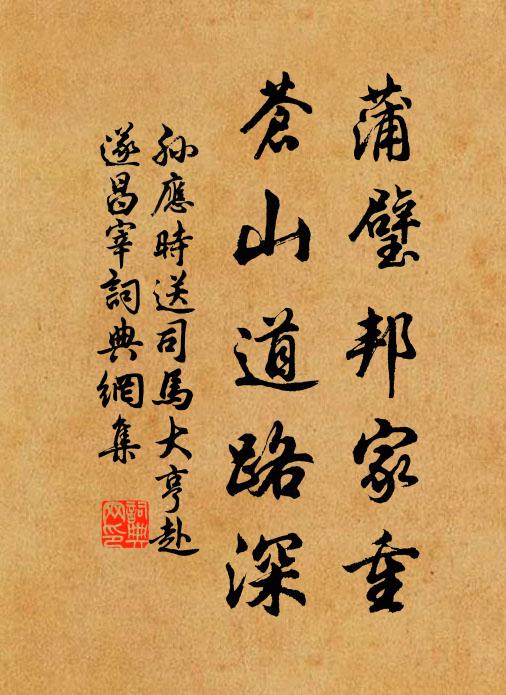 蒲璧邦家重
蒼山道路深
孫應時送司馬大亨赴
遂昌宰詞典網集
詞典
网印